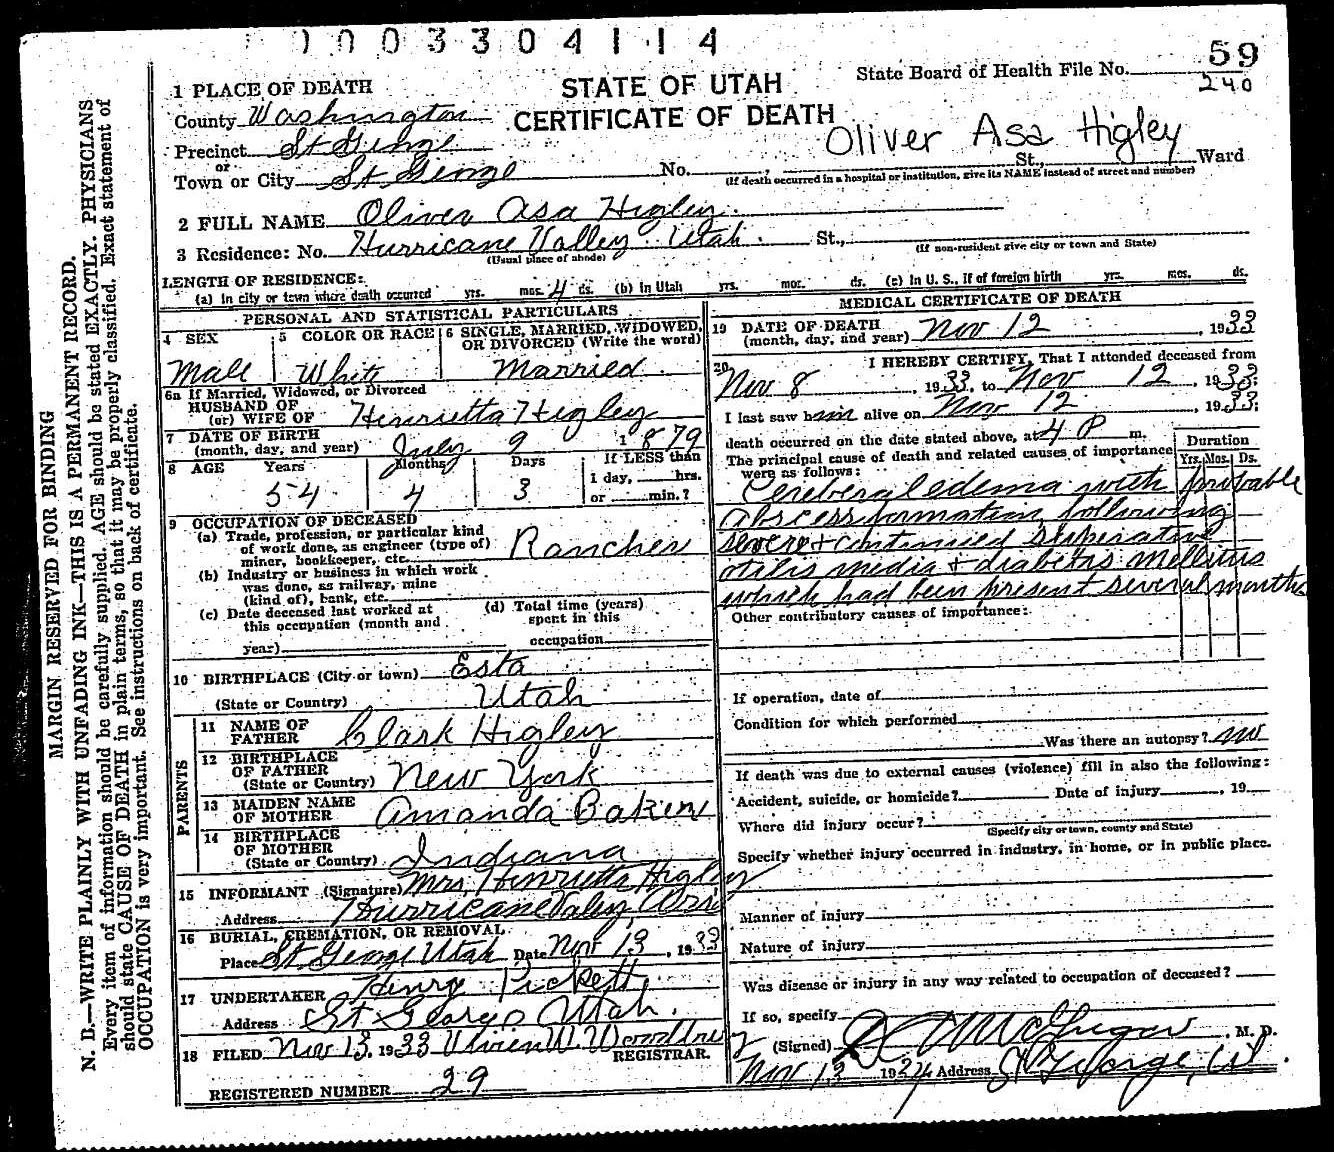 1003304114
59
State Board of Health File No.
240
STATE OF UTAH
CERTIFICATE OF DEATH
Oliver Asa Higley
1 PLACE OF DEATH
County Washington
Precinct St George
or
Town or City St George No. St., Ward
(If death occurred in a hospital or institution, give its NAME instead of street and number)
2 FULL NAME Oliver Asa Higley
3 Residence: No. Hurricane Valley Utah. St.,
(Usual place of abode) (If non-resident give city or town and State)
LENGTH OF RESIDENCE:
(a) In city or town where death occurred yrs. mos. 4 ds. (b) in Utah yrs. mos. ds. (c) in U. S., if of foreign birth yrs. mos. ds.
PERSONAL AND STATISTICAL PARTICULARS
4 SEX
Male
5 COLOR OR RACE
White
6 SINGLE, MARRIED, WIDOWED, OR DIVORCED (Write the word)
Married
6a If Married, Widowed, or Divorced
HUSBAND OF
(or) WIFE OF Henrietta Higley
7 DATE OF BIRTH
(month, day, and year) July 9 1879
8 AGE Years Months Days If LESS than
54 4 3 1 day, hrs.
or min.?
9 OCCUPATION OF DECEASED
(a) Trade, profession, or particular kind
of work done, as engineer (type of)
miner, bookkeeper, etc. Rancher
(b) Industry or business in which work
was done, as railway, mine
(kind of), bank, etc.
(c) Date deceased last worked at
this occupation (month and
year)
(d) Total time (years)
spent in this
occupation
10 BIRTHPLACE (City or town) Esta
(State or Country) Utah
PARENTS
11 NAME OF
FATHER Clark Higley
12 BIRTHPLACE
OF FATHER
(State or Country) New York
13 MAIDEN NAME
OF MOTHER Amanda Baken
14 BIRTHPLACE
OF MOTHER
(State or Country) Indiana
15 INFORMANT (Signature) Mrs. Henrietta Higley
Address Hurricane Valey,
16 BURIAL, CREMATION, OR REMOVAL
Place St George Utah Date Nov 13, 1933
17 UNDERTAKER Henry Pickett
Address St George Utah.
18 FILED Nov 13, 1933 Vivien W. Woodbury
REGISTRAR.
REGISTERED NUMBER 29
MEDICAL CERTIFICATE OF DEATH
19 DATE OF DEATH
(month, day, and year) Nov 12, 1933
20 I HEREBY CERTIFY, That I attended deceased from
Nov 8, 1933, to Nov 12, 1933;
I last saw him alive on Nov 12, 1933;
death occurred on the date stated above, at 4 P m.
The principal cause of death and related causes of importance
were as follows:
Duration
Yrs. Mos. Ds.
Cerebral edema with probable
abscess formation, following
severe + continued suppurative
otitis media + diabetes mellitus
which had been present several months
Other contributory causes of importance:
If operation, date of
Condition for which performed
Was there an autopsy? no
If death was due to external causes (violence) fill in also the following:
Accident, suicide, or homicide? Date of injury , 19
Where did injury occur?
(Specify city or town, county and State)
Specify whether injury occurred in industry, in home, or in public place.
Manner of injury
Nature of injury
Was disease or injury in any way related to occupation of deceased?
If so, specify
(Signed) McGregor, M. D.
Nov 13 1934 Address St George, Ut.
MARGIN RESERVED FOR BINDING
N. B.—WRITE PLAINLY WITH UNFADING INK—THIS IS A PERMANENT RECORD.
Every item of information should be carefully supplied. AGE should be stated EXACTLY. PHYSICIANS
should state CAUSE OF DEATH in plain terms, so that it may be properly classified. Exact statement of
OCCUPATION is very important. See instructions on back of certificate.